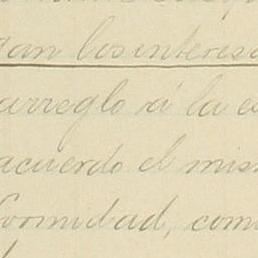 tan los interesa
arreglo á la es
acuerdo el mism
formidad, com